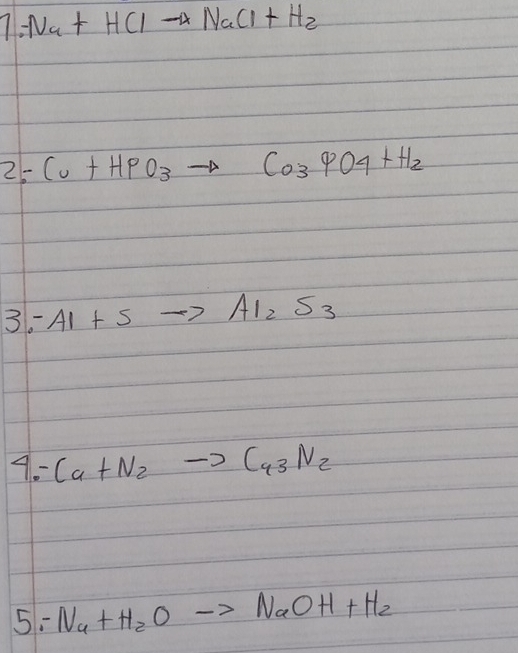 1.- Na + HCl → NaCl + H2
2.- Cu + HPO3 → Co3 PO4 + H2
3.- Al + S -> Al2 S3
4.- Ca + N2 -> Ca3 N2
5.- Na + H2O -> NaOH + H2